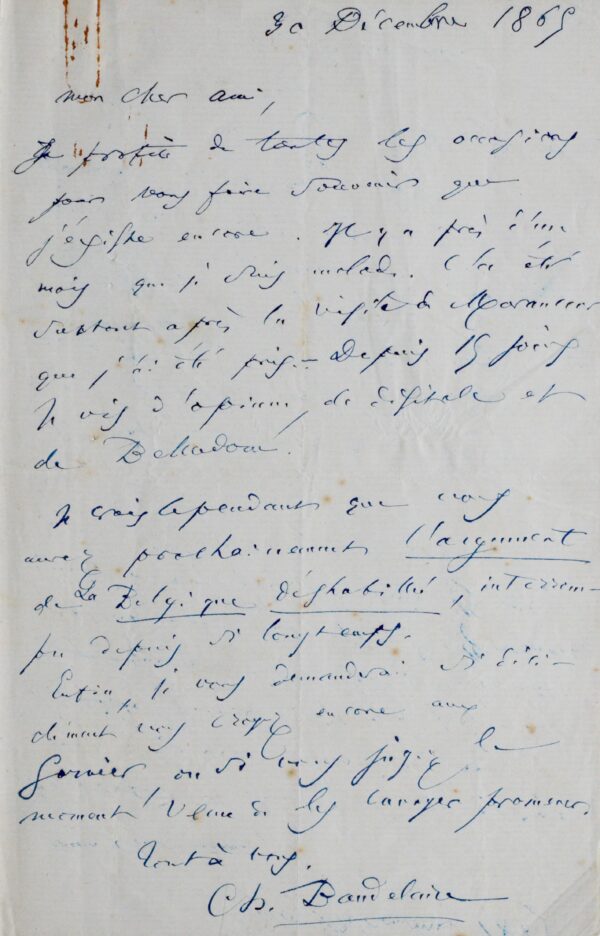 30 Décembre 1865
mon cher ami,
Je profite de toutes les occasions
pour vous faire souvenir que
j'existe encore. Il y a près d'un
mois que je suis malade. C'a été
surtout après la visite de
que j'ai été pris. — Depuis 15 jours
je vis d'opium, de digitale et
de Belladone.
Je crois cependant que vous
aurez prochainement l'argument
de La Belgique déshabillée, interrom-
pu depuis si longtemps.
Enfin, je vous demanderai si déci-
dément vous croyez encore aux
Garnier, ou si vous jugez le
moment venu de les envoyer promener.
Tout à vous.
Ch. Baudelaire